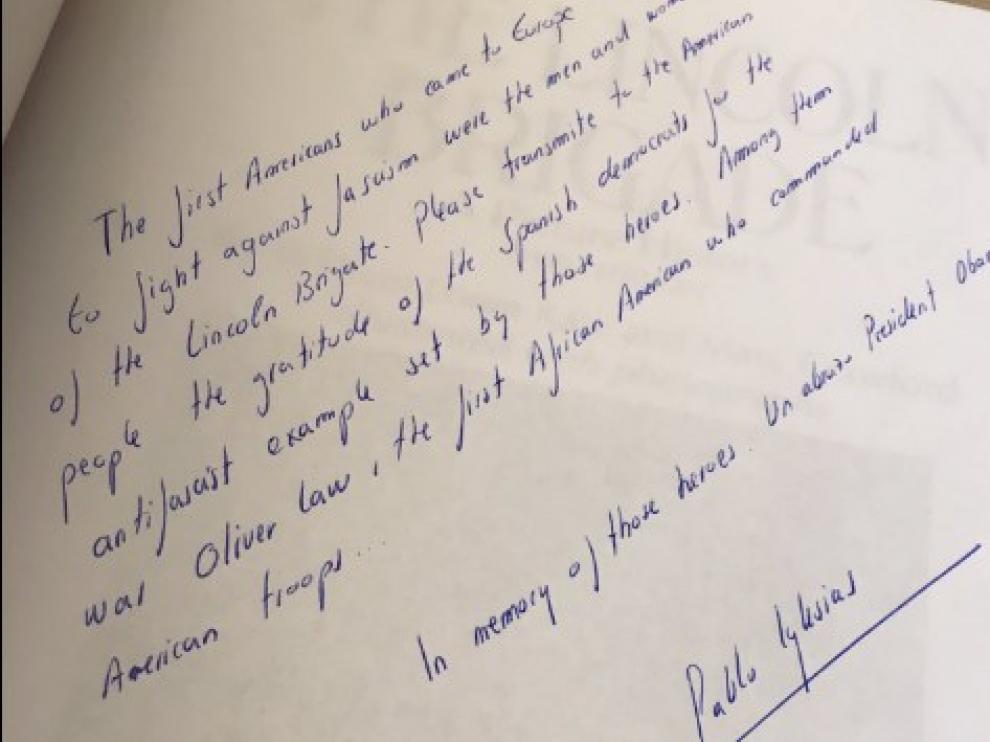 The first Americans who came to Europe
to fight against fascism were the men and wom
of the Lincoln Brigate. Please transmite to the American
people the gratitude of the Spanish democrats for the
antifascist example set by those heroes. Among them
was Oliver Law, the first African American who commanded
American troops...
In memory of those heroes. Un abrazo President Obam
Pablo Iglesias